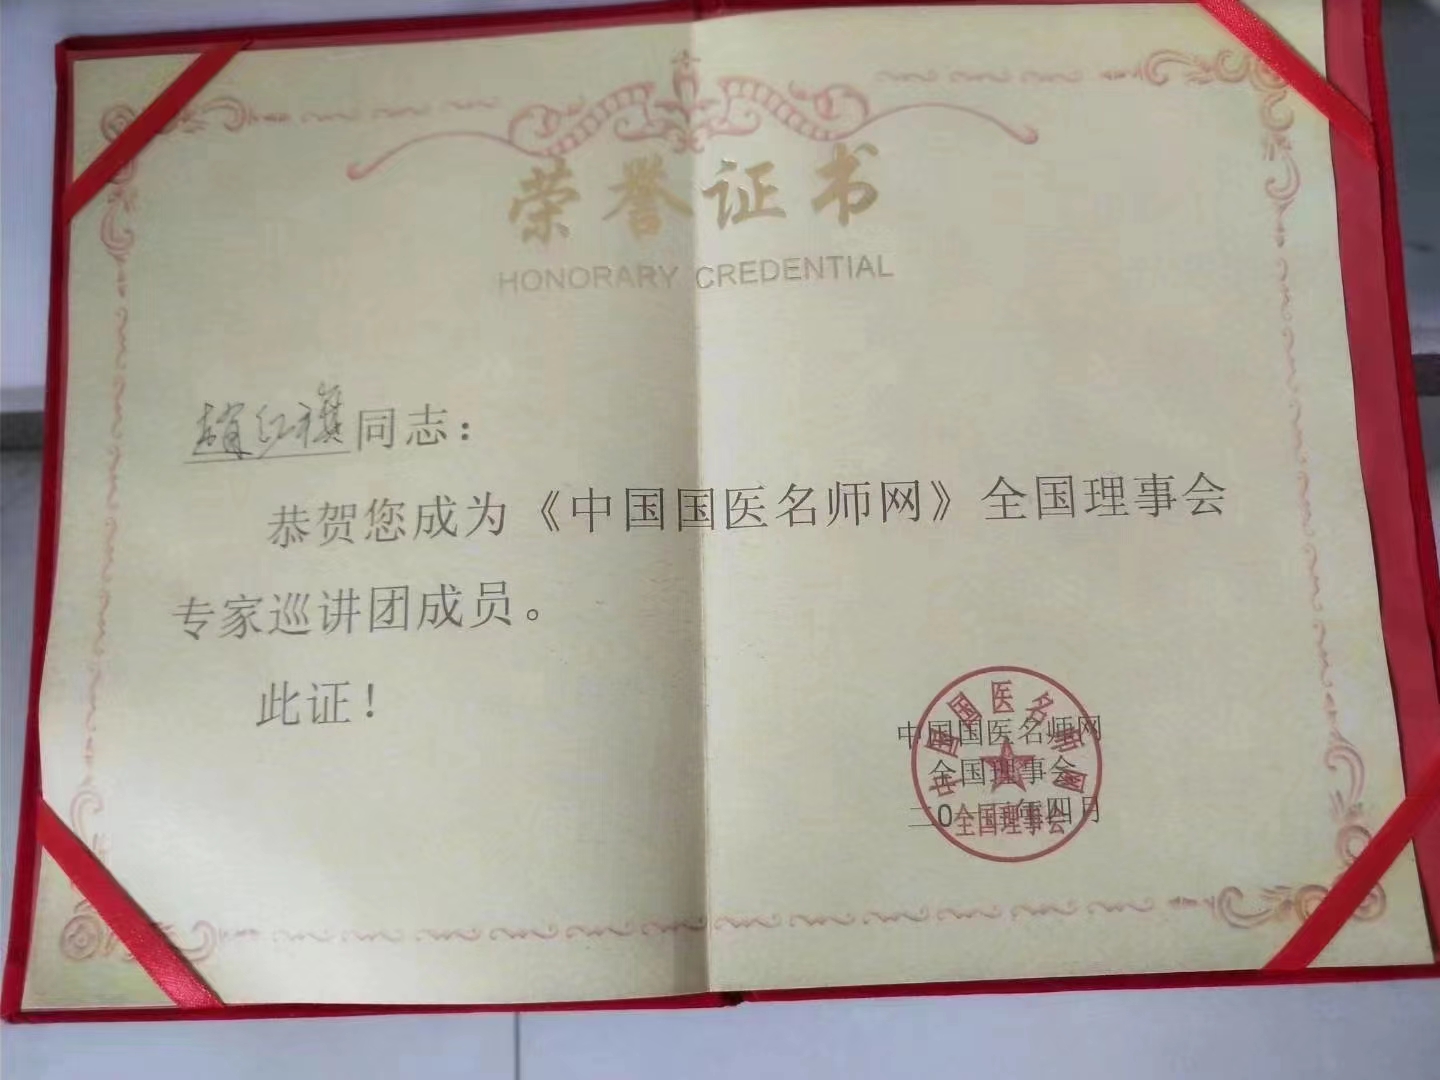 荣誉证书
HONORARY CREDENTIAL
赵红旗同志：
恭贺您成为《中国国医名师网》全国理事会
专家巡讲团成员。
此证！
中国国医名师网
全国理事会
年四月
中国国医名师网
全国理事会